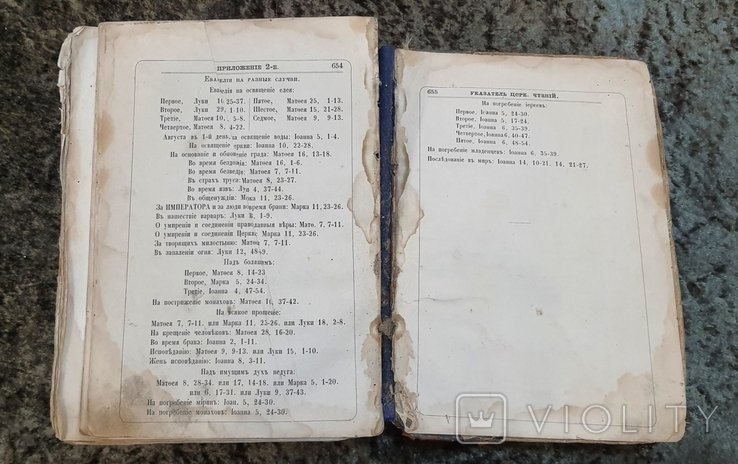 ПРИЛОЖЕНІЕ 2-е. 654
ЕВАНГЕЛІЯ НА РАЗНЫЕ СЛУЧАИ.
Евангелія на освященіе елея:
Первое, Луки 10, 25-37. Пятое, Матѳея 25, 1-13.
Второе, Луки 19, 1-10. Шестое, Матѳея 15, 21-28.
Третіе, Матѳея 10, 5-8. Седьмое, Матѳея 9, 9-13.
Четвертое, Матѳея 8, 14-22.
Августа въ 1-й день, за освященіе воды: Іоанна 5, 1-4.
На освященіе церкви: Іоанна 10, 22-28.
На основаніе и обновленіе града: Матѳея 16, 13-18.
Во время бездождія: Матѳея 16, 1-6.
Во время безведрія: Матѳея 7, 7-11.
Въ страхъ труса: Матѳея 8, 23-27.
Во время язвы: Луки 4, 37-44.
Въ общенуждіи: 11, 23-26.
За ИМПЕРАТОРА и за люди во время брани: Марка 11, 23-26.
Въ нашествіе варваръ: Луки 1-9.
О умиреніи и соединеніи православныя вѣры: Матѳ. 7, 7-11.
О умиреніи и соединеніи Церкви: Марка 11, 23-26.
За творящихъ милостыню: Матѳея 7, 7-11.
Въ запаленіи огня: Луки 12, 48-49.
Надъ болящимъ:
Первое, Матѳея 8, 14-23
Второе, Марка 5, 24-34.
Третіе, Іоанна 4, 47-54.
На постриженіе монаховъ: Матѳея 10, 37-42.
На всякое прошеніе:
Матѳея 7, 7-11. или Марка 11, 23-26. или Луки 18, 2-8.
На крещеніе человѣковъ: Матѳея 28, 16-20.
Во время брака: Іоанна 2, 1-11.
Исповѣданію: Матѳея 9, 9-13. или Луки 15, 1-10.
Женъ исповѣданію: Іоанна 8, 3-11.
Надъ имущимъ духъ недуга:
Матѳея 8, 28-34. или 17, 14-18. или Марка 5, 1-20.
или 6, 17-31. или Луки 9, 37-43.
На погребеніе мірянъ: Іоан. 5, 24-30.
На погребеніе монаховъ: Іоанна 5, 24-30.
655 УКАЗАТЕЛЬ ЦЕРК. ЧТЕНІЙ.
На погребеніе іереевъ:
Первое, Іоанна 5, 24-30.
Второе, Іоанна 5, 17-24.
Третіе, Іоанна 6, 35-39.
Четвертое, Іоанна 6, 40-47.
Пятое, Іоанна 6, 48-54.
На погребеніе младенцевъ: Іоанна 6, 35-39.
Послѣдованіе въ миръ: Іоанна 14, 10-21. 14, 21-27.
VIOLITY